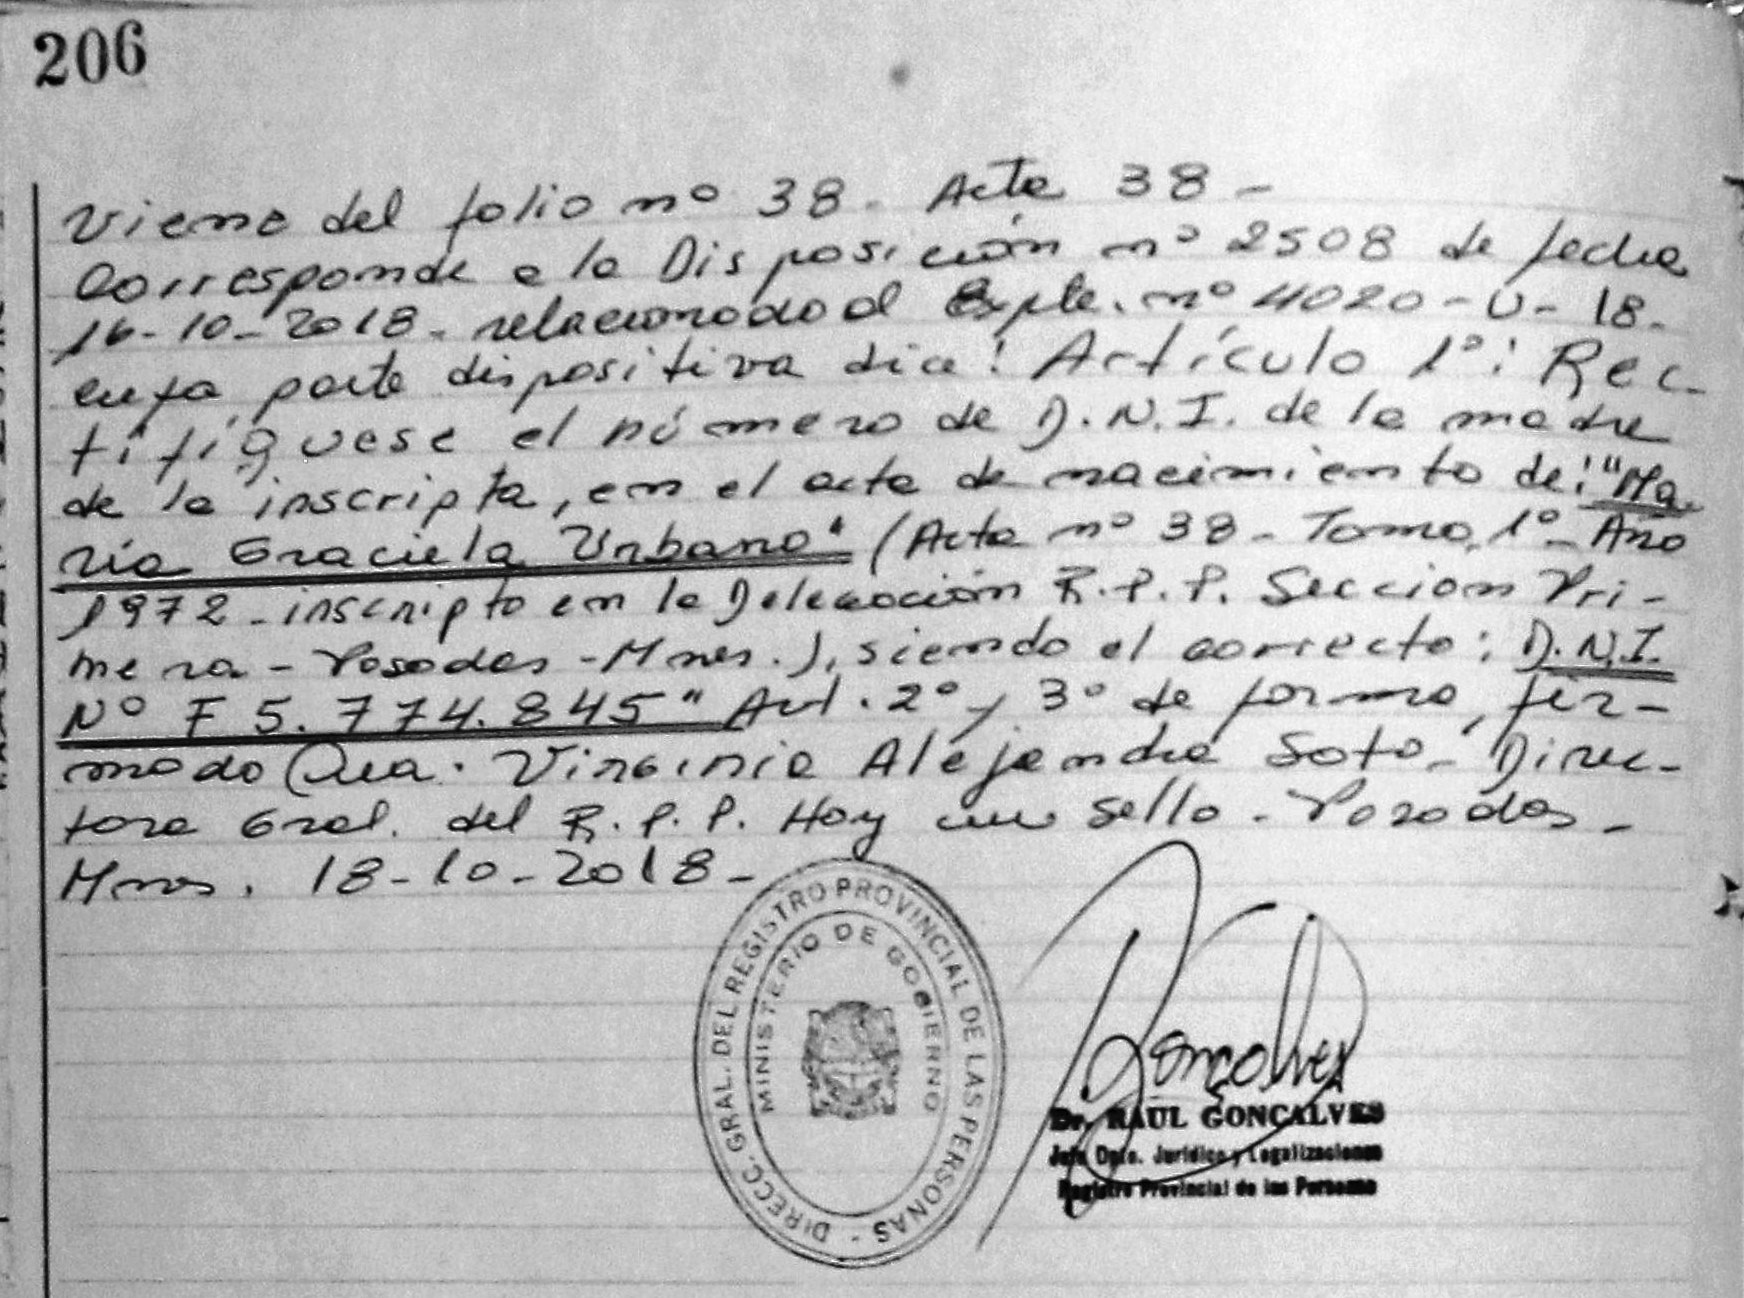 206
Viene del folio nº 38. Acta 38 -
Corresponde a la Disposición nº 2508 de fecha
16-10-2018. relacionado al Expte. nº 4020-U-18.
cuya parte dispositiva dice: Artículo 1º: Rec-
tifíquese el número de D.N.I. de la madre
de la inscripta, en el acta de nacimiento de: "Ma
ría Graciela Urbano" (Acta nº 38 - Tomo 1º - Año
1972 - inscripto en la Delegación R.P.P. Sección Pri-
mera - Posadas - Mnes.), siendo el correcto: D.N.I.
Nº F 5.774.845" Art. 2º y 3º de forma, fir-
mado Dra. Virginia Alejandra Soto - Direc-
tora Gral. del R.P.P. Hay un sello. Posadas -
Mnes. 18-10-2018 -
DIRECC. GRAL. DEL REGISTRO PROVINCIAL DE LAS PERSONAS -
MINISTERIO DE GOBIERNO
Gonçalves
Dr. RAUL GONÇALVES
Jefe Dpto. Jurídico y Legalizaciones
Registro Provincial de las Personas